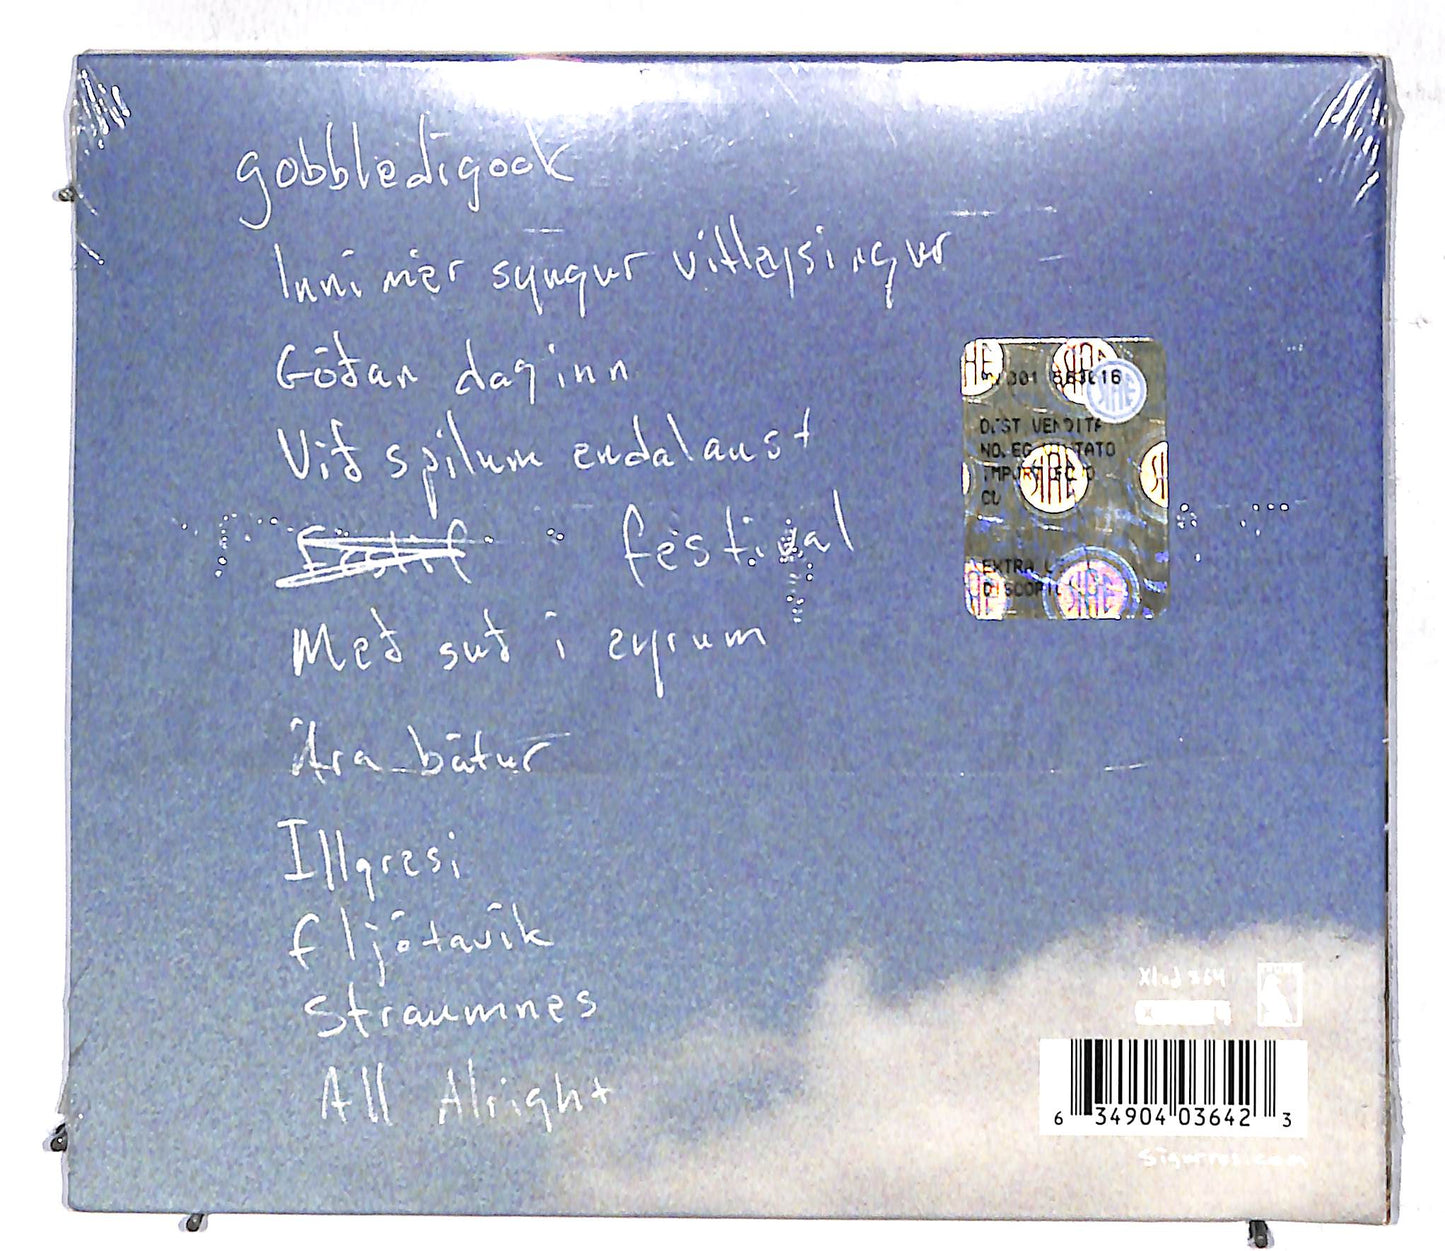 gobbledigook
Inní mér syngur vitleysingur
Góðan daginn
Við spilum endalaust
Festif festival
Með suð í eyrum
Ára bátur
Illgresi
fljótavík
Straumnes
All Alright
301 563 16
VENDITA
EXTRA
SIAE
SIAE
SIAE
Xlcd 364
6 34904 03642 3
sigurros.com